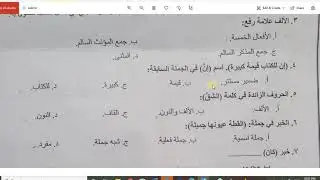 ٣. الألف علامة رفع:
أ. الأفعال الخمسة. ب. جمع المؤنث السالم.
ج. جمع المذكر السالم. د. المثنى.
٤. (إن للكتاب قيمة كبيرة)، اسم (إن) في الجملة السابقة:
أ. ضمير مستتر. ب. قيمة. ج. كبيرة. د. للكتاب.
٥. الحروف الزائدة في كلمة (انشق):
أ. الألف. ب. الألف والنون. ج. القاف. د. النون.
٦. الخبر في جملة: (القطة عيونها جميلة):
أ. جملة اسمية. ب. جملة فعلية. ج. شبه جملة. د. مفرد.
٧. خبر (كان)